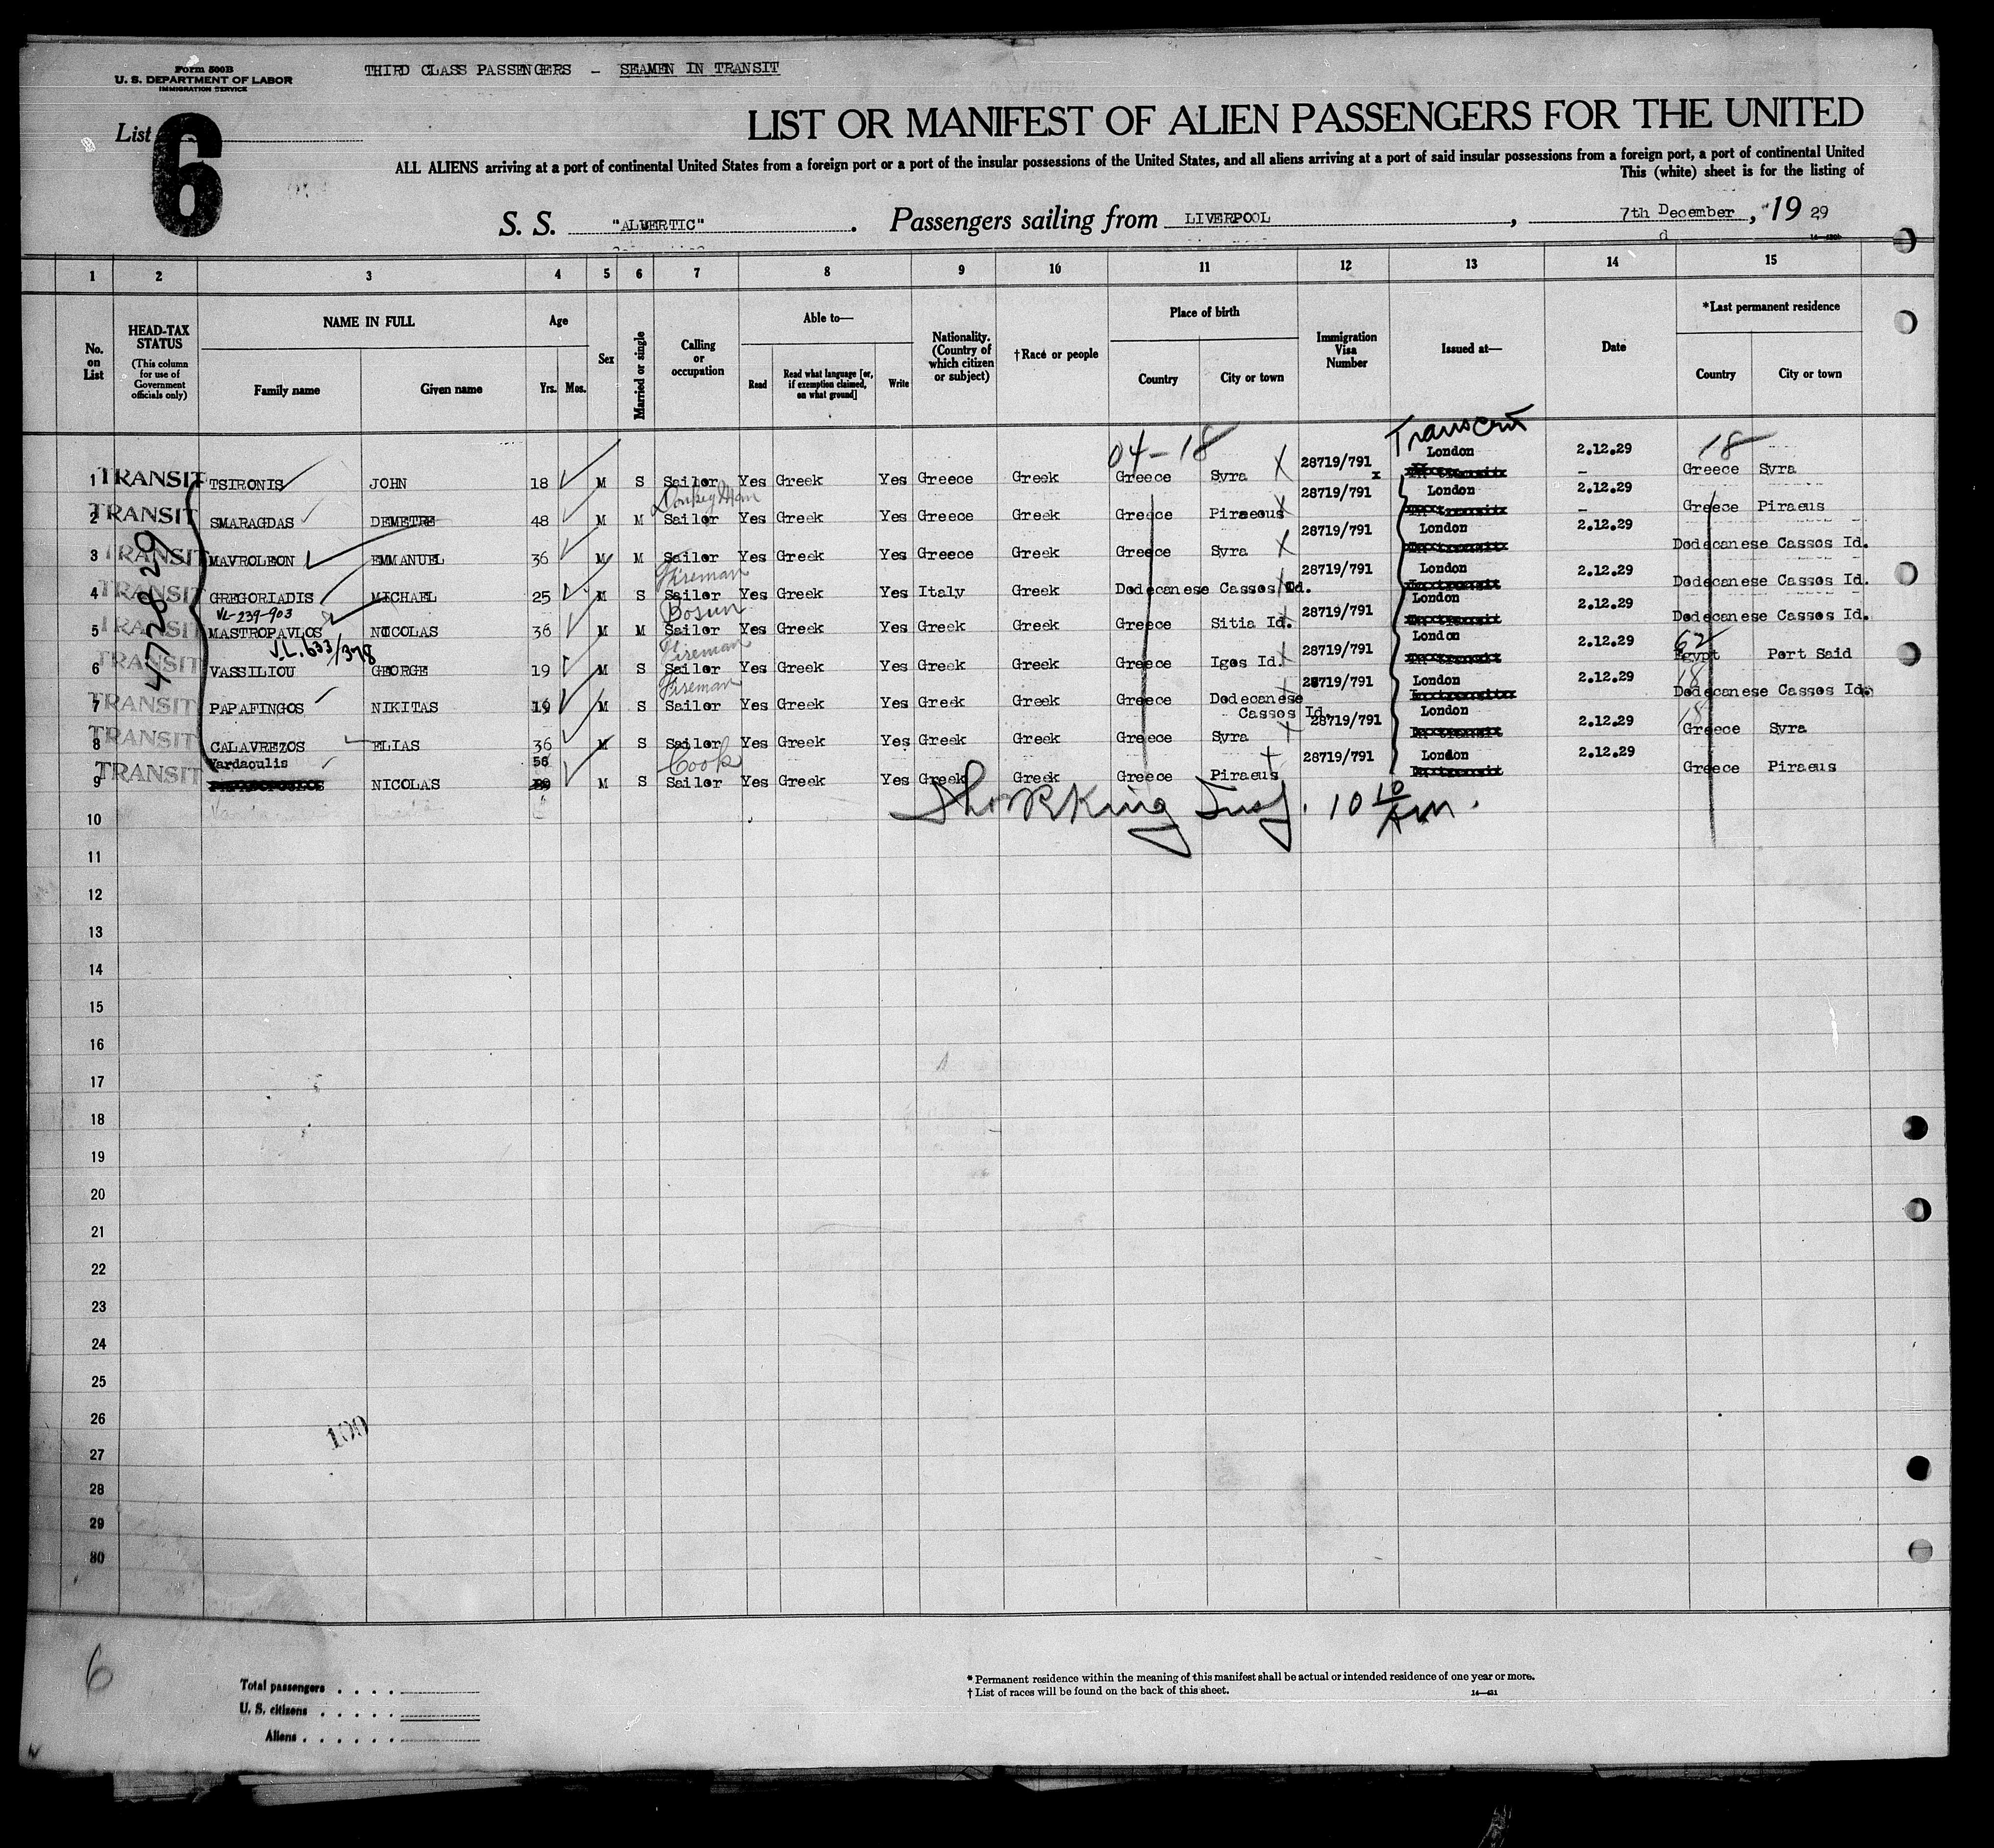 Form 500B
U. S. DEPARTMENT OF LABOR
IMMIGRATION SERVICE
THIRD CLASS PASSENGERS – SEAMEN IN TRANSIT
List 6
LIST OR MANIFEST OF ALIEN PASSENGERS FOR THE UNITED
ALL ALIENS arriving at a port of continental United States from a foreign port or a port of the insular possessions of the United States, and all aliens arriving at a port of said insular possessions from a foreign port, a port of continental United
This (white) sheet is for the listing of
S. S. "ALBERTIC". Passengers sailing from LIVERPOOL, 7th December, 19 29
1 2 3 4 5 6 7 8 9 10 11 12 13 14 15
No. on List
HEAD-TAX STATUS
(This column for use of Government officials only)
NAME IN FULL
Family name Given name
Age
Yrs. Mos.
Sex
Married or single
Calling or occupation
Able to—
Read
Read what language [or, if exemption claimed, on what ground]
Write
Nationality. (Country of which citizen or subject)
†Race or people
Place of birth
Country City or town
Immigration Visa Number
Issued at—
Date
*Last permanent residence
Country City or town
04-18 18
1 TRANSIT TSIRONIS JOHN 18 M S Sailor Yes Greek Yes Greece Greek Greece Syra 28719/791 London 2.12.29 Greece Syra
2 TRANSIT SMARAGDAS DEMETRE 48 M M Sailor Yes Greek Yes Greece Greek Greece Piraeous 28719/791 London 2.12.29 Greece Piraeus
3 TRANSIT MAVROLEON EMMANUEL 36 M M Sailor Yes Greek Yes Greece Greek Greece Syra 28719/791 London 2.12.29 Dodecanese Cassos Id.
Fireman
4 TRANSIT GREGORIADIS MICHAEL 25 M S Sailor Yes Greek Yes Italy Greek Dodecanese Cassos Id. 28719/791 London 2.12.29 Dodecanese Cassos Id.
VL-239-903 Bosun
5 TRANSIT MASTROPAVLOS NICOLAS 36 M M Sailor Yes Greek Yes Greek Greek Greece Sitia Id. 28719/791 London 2.12.29 Dodecanese Cassos Id.
VL.633/378 Fireman 62
6 TRANSIT VASSILIOU GEORGE 19 M S Sailor Yes Greek Yes Greek Greek Greece Igos Id. 28719/791 London 2.12.29 Egypt Port Said
Fireman 18
7 TRANSIT PAPAFINGOS NIKITAS 19 M S Sailor Yes Greek Yes Greek Greek Greece Dodecanese Cassos Id. 28719/791 London 2.12.29 Dodecanese Cassos Id.
18
8 TRANSIT CALAVREZOS ELIAS 36 M S Sailor Yes Greek Yes Greek Greek Greece Syra 28719/791 London 2.12.29 Greece Syra
Vardaoulis 56 Cook
9 TRANSIT NICOLAS M S Sailor Yes Greek Yes Greek Greek Greece Piraeus 28719/791 London 2.12.29 Greece Piraeus
4728 29
10
10 10/AM.
11
12
13
14
15
16
17
18
19
20
21
22
23
24
25
26
100
27
28
29
30
6
Total passengers
U. S. citizens
Aliens
* Permanent residence within the meaning of this manifest shall be actual or intended residence of one year or more.
† List of races will be found on the back of this sheet.